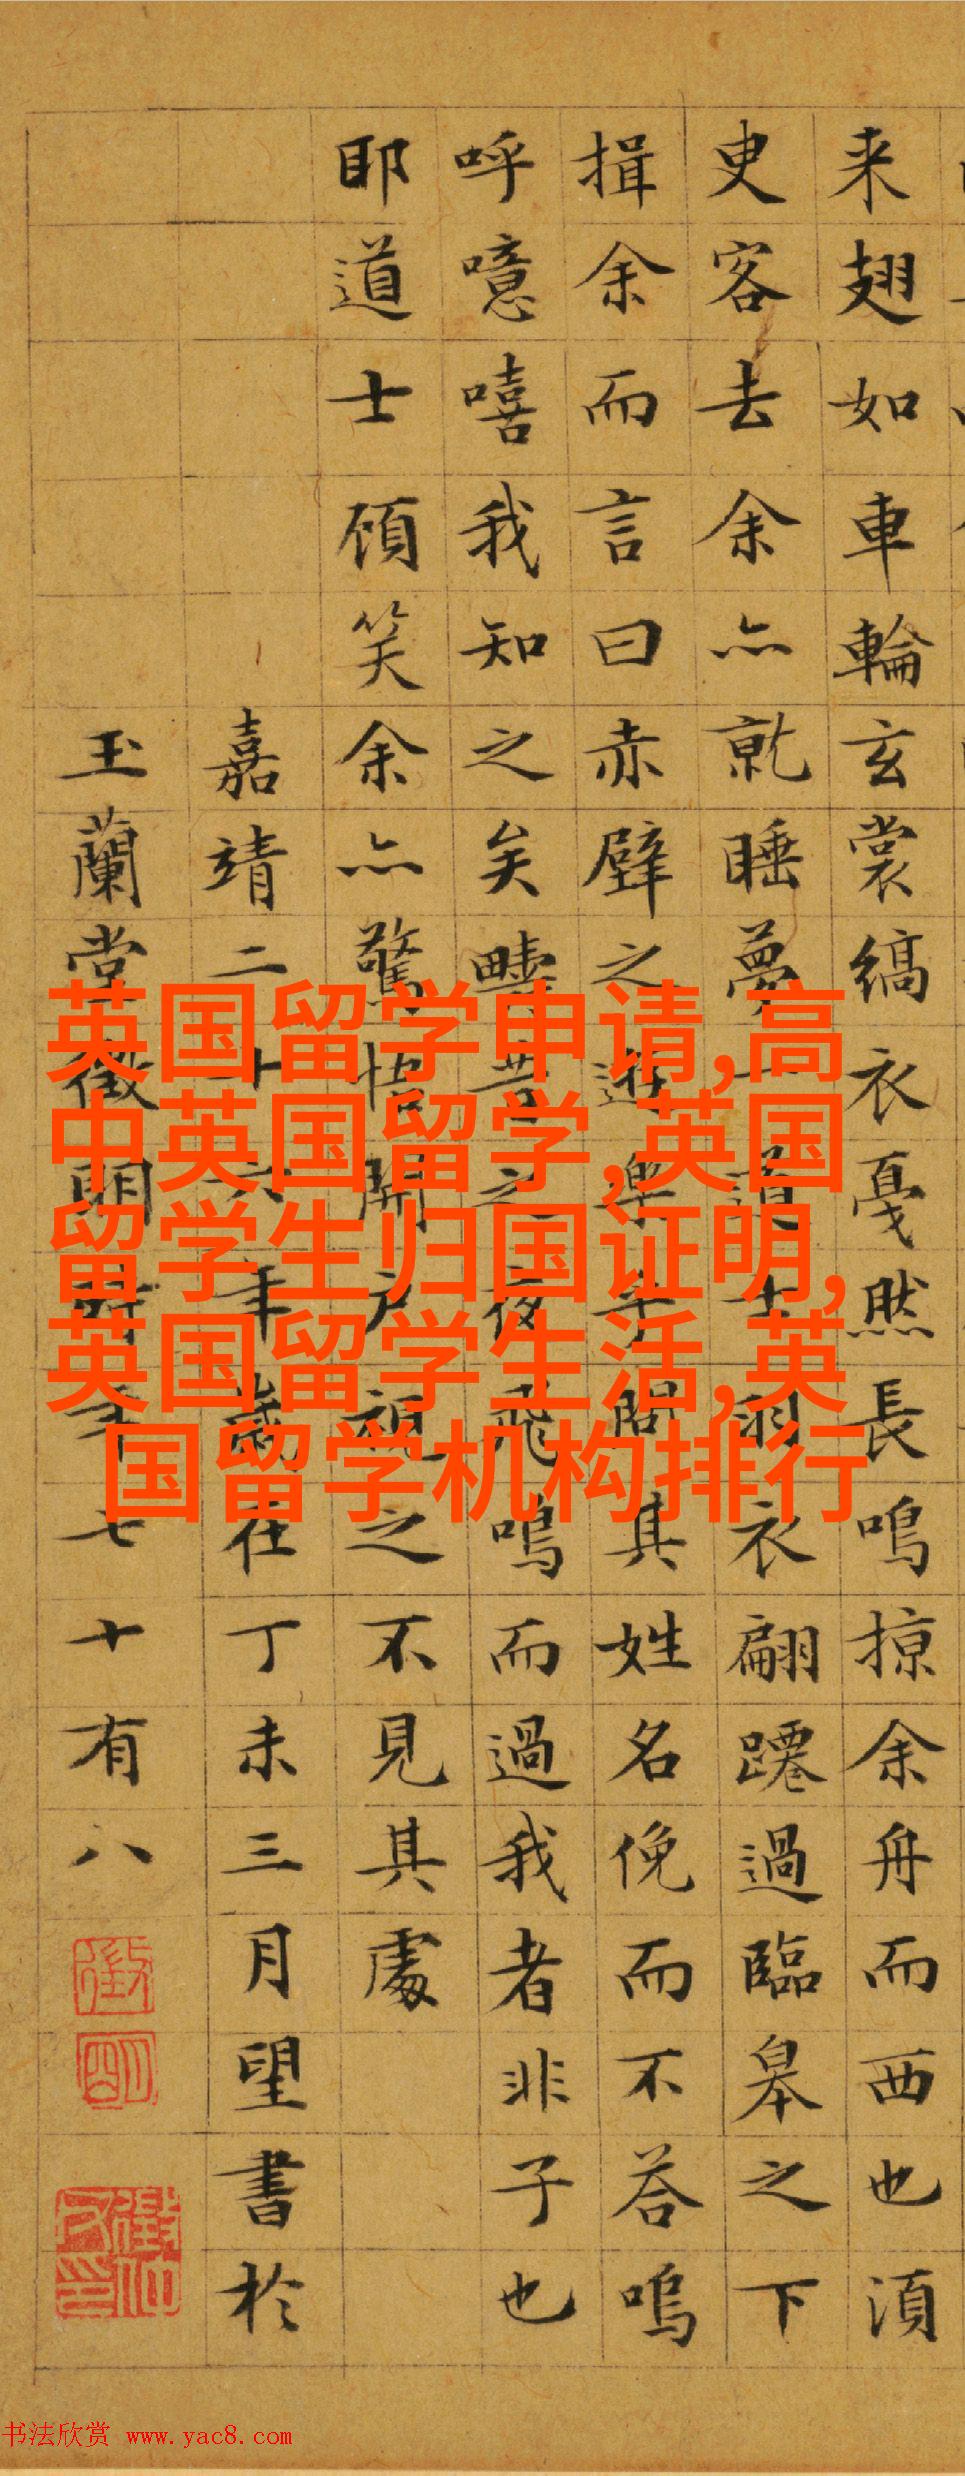 来翅如車輪玄裳縞衣戛然長鳴掠余舟而西也湏
臾客去余亦就睡夢一道士羽衣翩躚過臨皋之下
揖余而言曰赤壁之遊樂乎問其姓名俛而不荅嗚
呼噫嘻我知之矣疇昔之夜飛鳴而過我者非子也
耶道士顧笑余亦驚悟開户視之不見其處
嘉靖二十六年歲在丁未三月望書於
玉蘭堂徵明時年七十有八
徵
明
英国留学申请,高
中英国留学,英国
留学生归国证明,
英国留学生活,英
国留学机构排行
书法欣赏 www.yac8.com